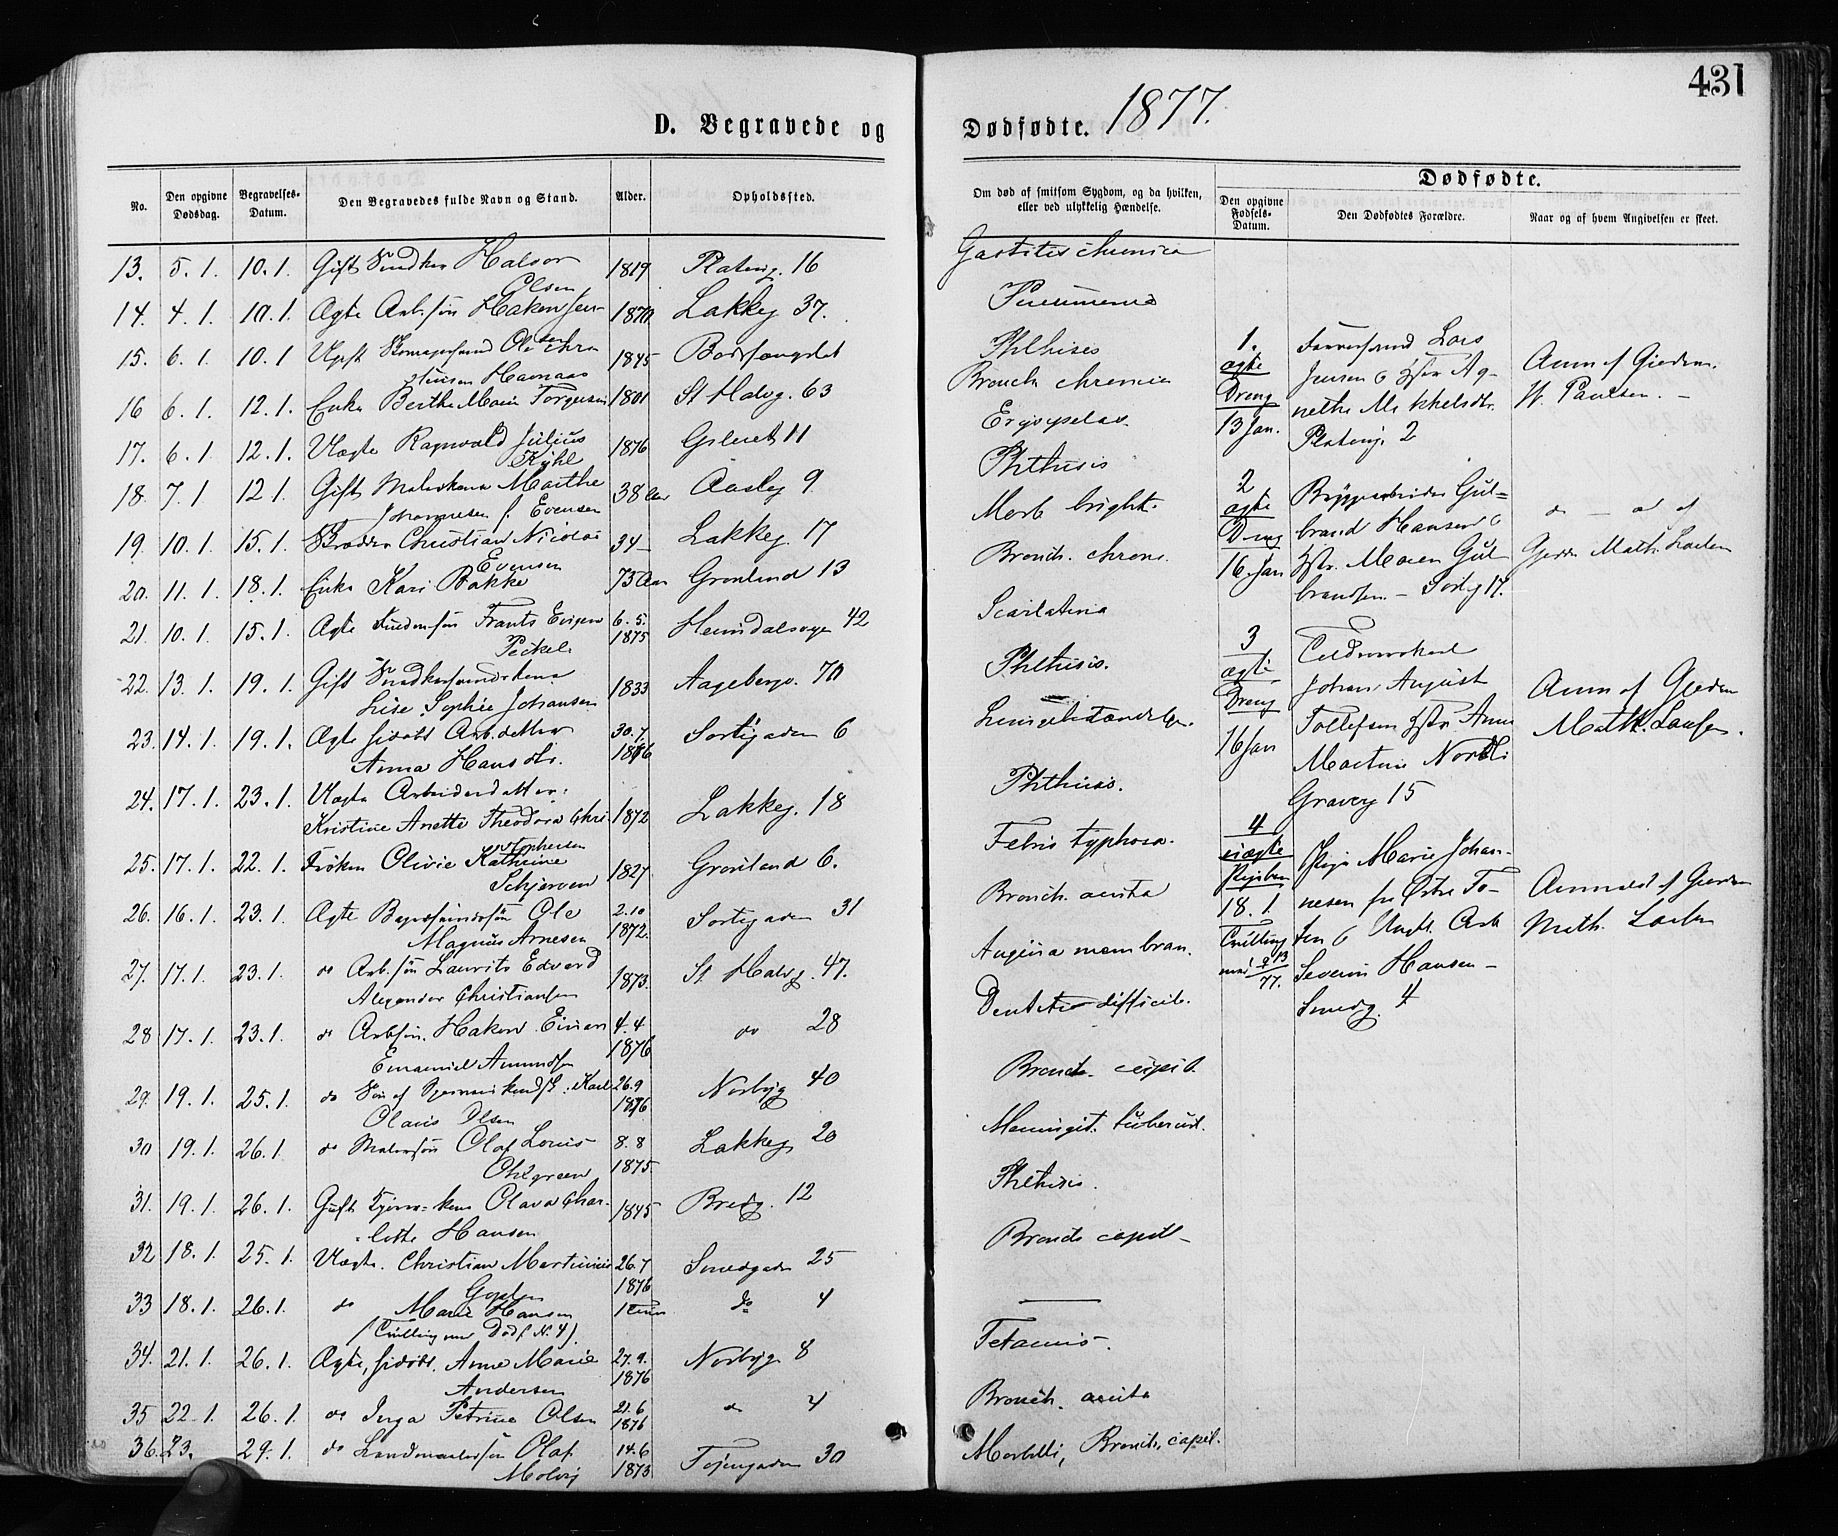 431
D. Begravede og Dødfødte. 1877.
No.
Den opgivne Dødsdag.
Begravelses-Datum.
Den Begravedes fulde Navn og Stand.
Alder.
Opholdssted.
Om død af smitsom Sygdom, og da hvilken, eller ved ulykkelig Hændelse.
Dødfødte.
Den opgivne Fødsels-Datum.
Den Dødfødtes Forældre.
Naar og af hvem Angivelsen er skeet.
13. 5. 1. 10. 1. Gift Snedker Halvor 1819 Plateng. 16
Olsen
14. 4. 1. 10. 1. Ægte Arb.søn Hakon Jen- 1870 Lakkeg 37.
15. 6. 1. 10. 1 Ole 1845 Bodsfængslet
Jensen
16 6. 1. 12. 1. Enke Berthe Marie Torgersen 1801 St Halvg. 63
17. 6. 1. 12. 1. Uægte Ragnvald Julius 1876 11
Kyhl
18. 7. 1 12 1. Gift Malerkone Marthe 38 Aar 9
Johannesen f. Evensen
19. 10. 1. 15. 1. Christian Nicolai 34 – Lakkeg. 17
Evensen
20. 11. 1. 18. 1. Enke Kari Bakke 73 Aar Grønland 13
21. 10. 1. 15. 1. Ægte Frants Eugen 6. 5. 1875 Heimdalsvegen 42
22. 13. 1. 19. 1. Gift Snedkersvendskone 1833 Aagebergv. 70
Lise Sophie Johansen
23. 14. 1. 19. 1. Ægte sidøbt Arb.datter 30. 7. 1876 Sørligaden 6
Anna Hansdtr.
24. 17. 1. 23. 1. Uægte Arbeiderdatter:
Kristine Anette Theodora Chri- 1872 Lakkeg. 18
stophersen
25. 17. 1. 22. 1. Frøken Olivie Kathrine 1827 Grønland 6.
Schjerven
26. 16. 1. 23. 1. Ægte Bagersvendssøn Ole 2. 10 1872. Sørligaden 31
Magnus Arnesen
27. 17. 1. 23. 1. do Arb.søn Laurits Edvard 1873. St. Halvg. 47.
Alexander Christiansen
28 17. 1. 23. 1. do Arbsøn. Hakon Einar 4. 4 1876 do 28
Emanuel Amundsen
29. 19. 1. 25. 1. do Søn af Karl 26. 9 1876 Norbyg 40
Olaus Olsen
30 19. 1. 26. 1. do Malersøn Olaf Louis 8. 8 1875 Lakkeg 20
31. 19. 1. 26. 1. Gift Olava Char- 1845 Bredg. 12
lotte Hansen
32 18. 1. 25. 1. Uægte. Christian Martinius 26. 7 1876 Smedgaden 25
33 18. 1. 26. 1. do Marie Hansen 1 Time do 4
(Tvilling med Dødf. No. 4)
34. 21. 1. 26. 1. Ægte, sidøbt. Anne Marie 27. 9. 1876 Norbyg 8
Andersen
35 22. 1. 26. 1. do Inga Petrine Olsen 21. 6 1876 do 4
36. 23. 29. 1. do Landmaalersøn Olaf 14. 6 1873 Tøiengaden 30
Gastitis chronica
Pneumonia
Phthisis
Bronch. chronica
Erysypelas.
Phthisis
Morb. brighti.
Bronch. chron.
Scarlatina
Phthisis.
Lungebetændelse.
Phthisis.
Febris typhosa.
Bronch. acuta
Angina membran.
Dentitio difficil.
Bronch. capil.
Meningit. tubercul.
Phthisis.
Bronch capill –
Tetanus.
Bronch. acuta
Morbilli, Bronch. capil.
1.
ægte
Dreng
13 Jan.
Farversvend Lars
Jensen & Hstr Ag-
nethe Mikkelsdtr.
Plateng. 2
Anm af Gjordem.
W. Paulsen. –
2
ægte
Dreng
16. Jan
Bryggearbeider Gul-
brand Hansen &
Hstr. Maren Gul
brandsen. – Sørlig 17.
do – do af
Gjordm Math. Larsen
3
ægte
Dreng
16 Jan
Johan August
Tollefsen Hstr. Anne
Martine Nordli
Graverg 15
Anm af Gjordem
Math. Larsen.
4
uægte
Pigebarn
18. 1.
Tvilling
Pige Marie Johan-
nesen fra Østre To-
ten & Ungk. Arb
Severin Hansen –
Smedg. 4
Anmeldt af Gjordem
Math. Larsen